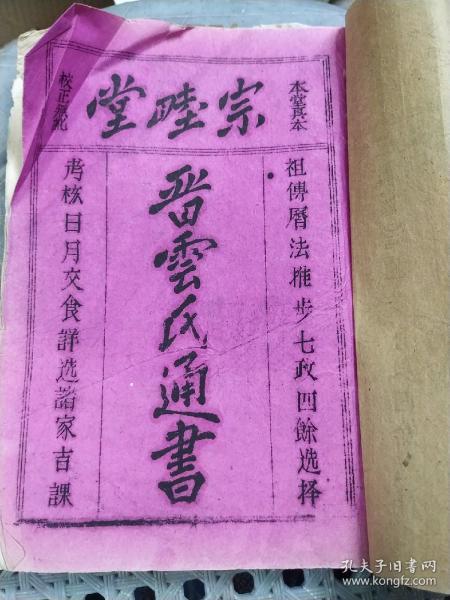 宗睦堂
本堂真本
祖傳曆法推步七政四餘选择
晋雲氏通書
考核日月交食詳选諸家吉課
校正無訛
孔夫子旧书网
www.kongfz.com